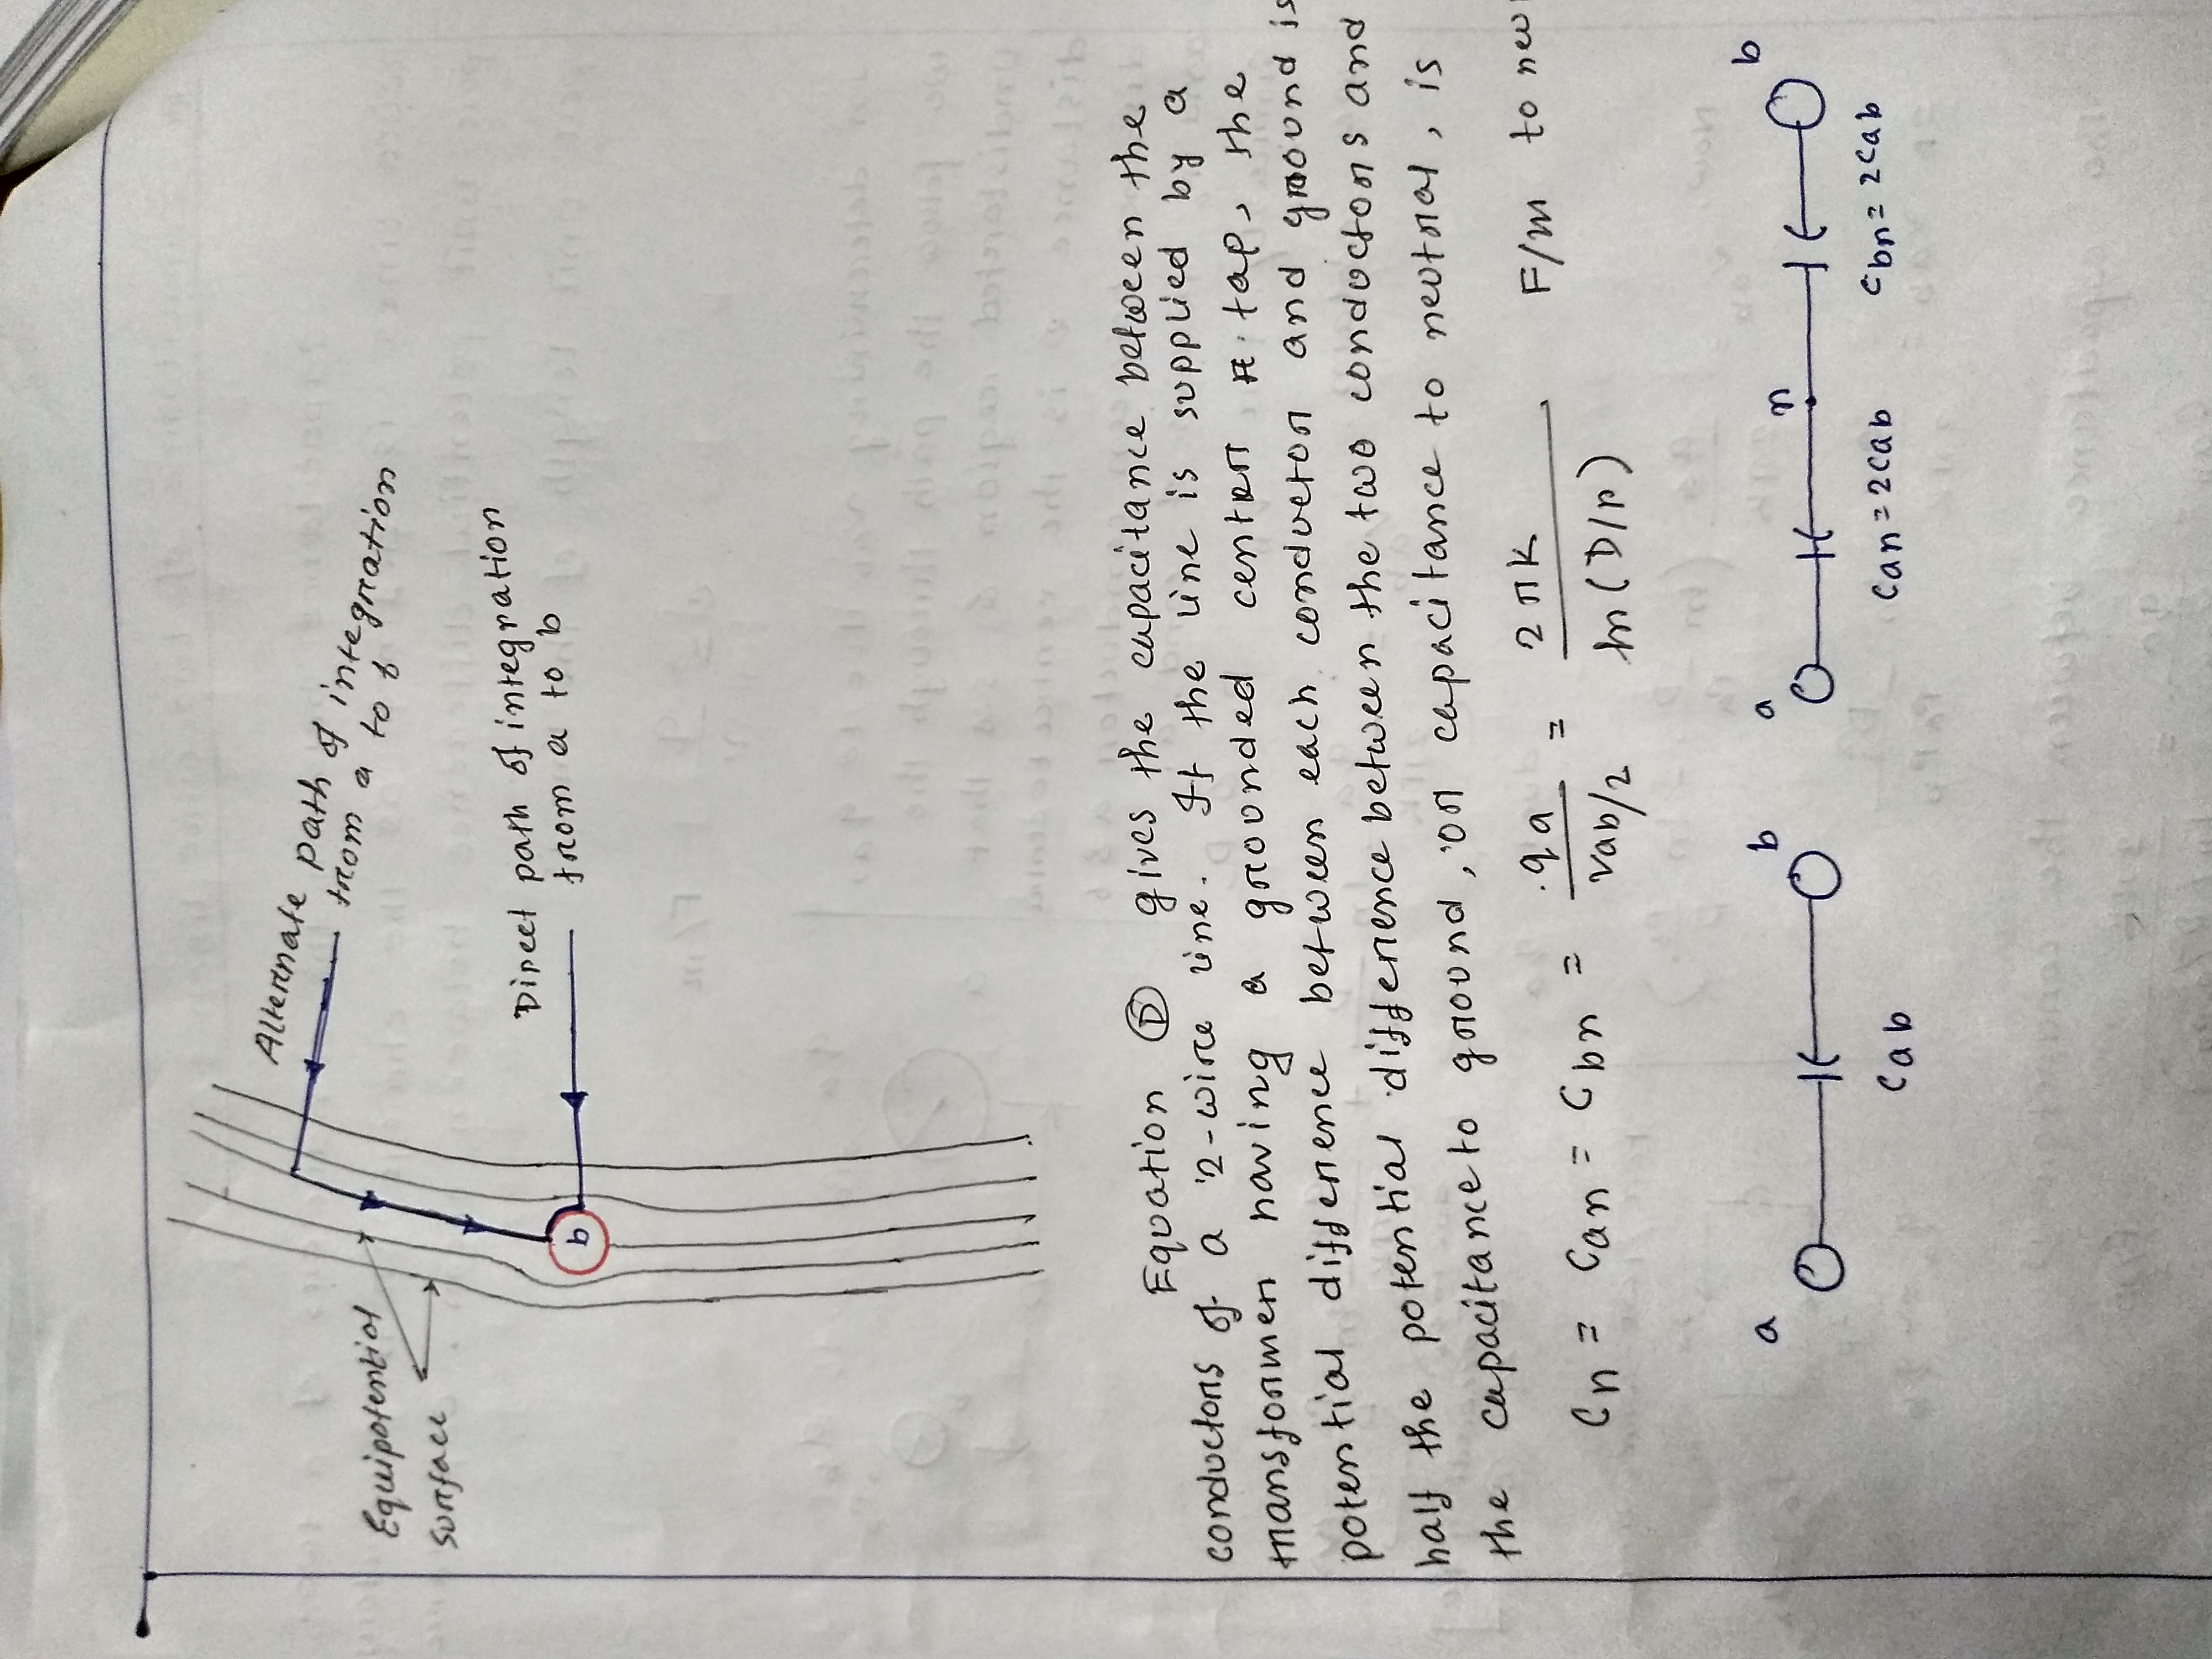 Alternate path of integration
from a to b
Direct path of integration
from a to b
Equipotential
surface
b
Equation D gives the capacitance between the
conductors of a 2-wire line. If the line is supplied by a
transformer having a grounded center tap, the
potential difference between each conductor and ground is
half the potential difference between the two conductors and
the capacitance to ground, or capacitance to neutral, is
Cn = Can = Cbn = qa / Vab/2 = 2πk / ln(D/r) F/m to
a b a n b
Cab Can = 2Cab Cbn = 2Cab